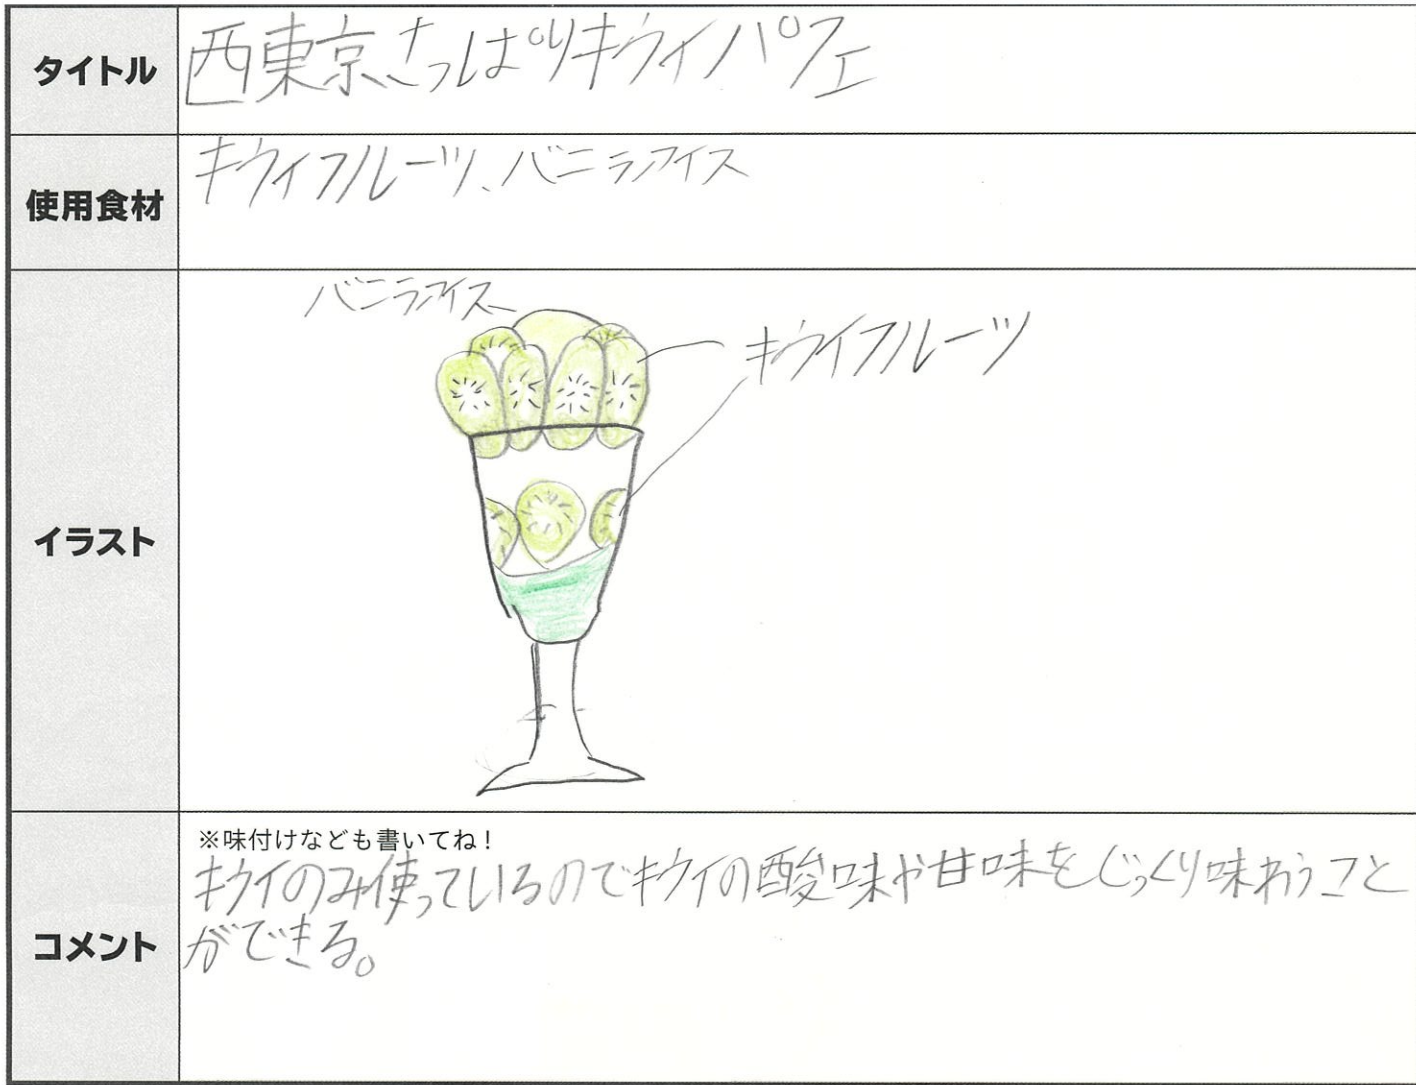 タイトル
西東京さっぱりキウイパフェ
使用食材
キウイフルーツ、バニラアイス
イラスト
バニラアイス
キウイフルーツ
コメント
※味付けなども書いてね！
キウイのみ使っているのでキウイの酸味や甘味をじっくり味わうこと
ができる。